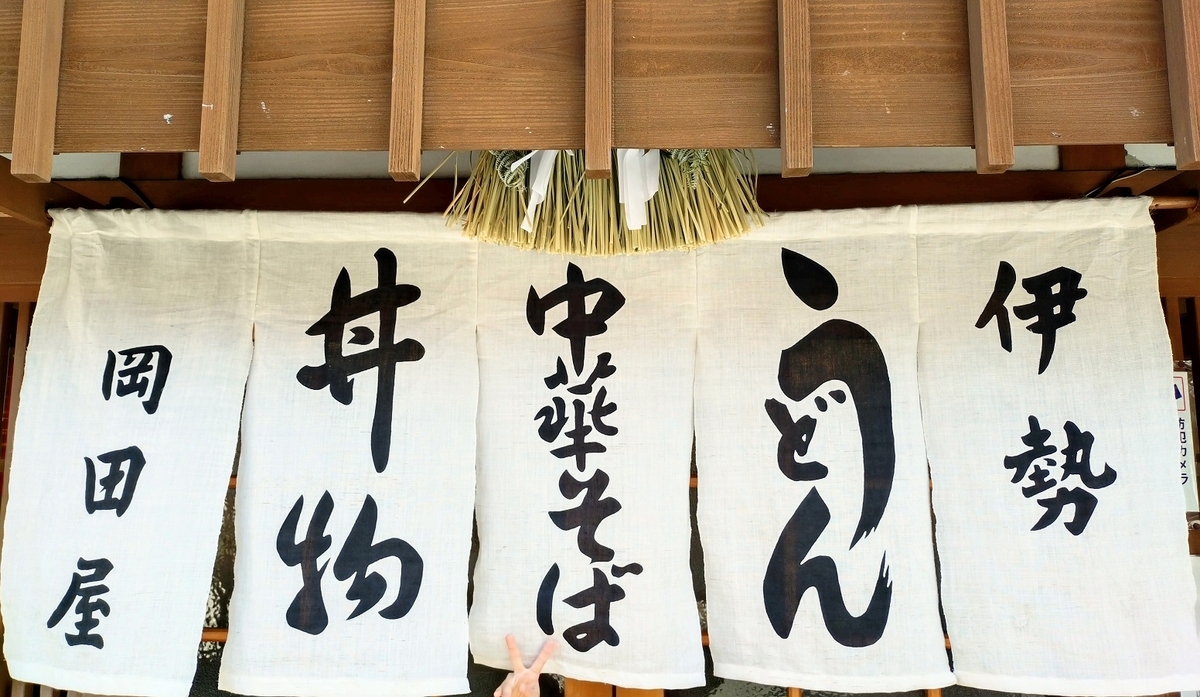 伊勢
うどん
中華そば
丼物
岡田屋
防犯カメラ